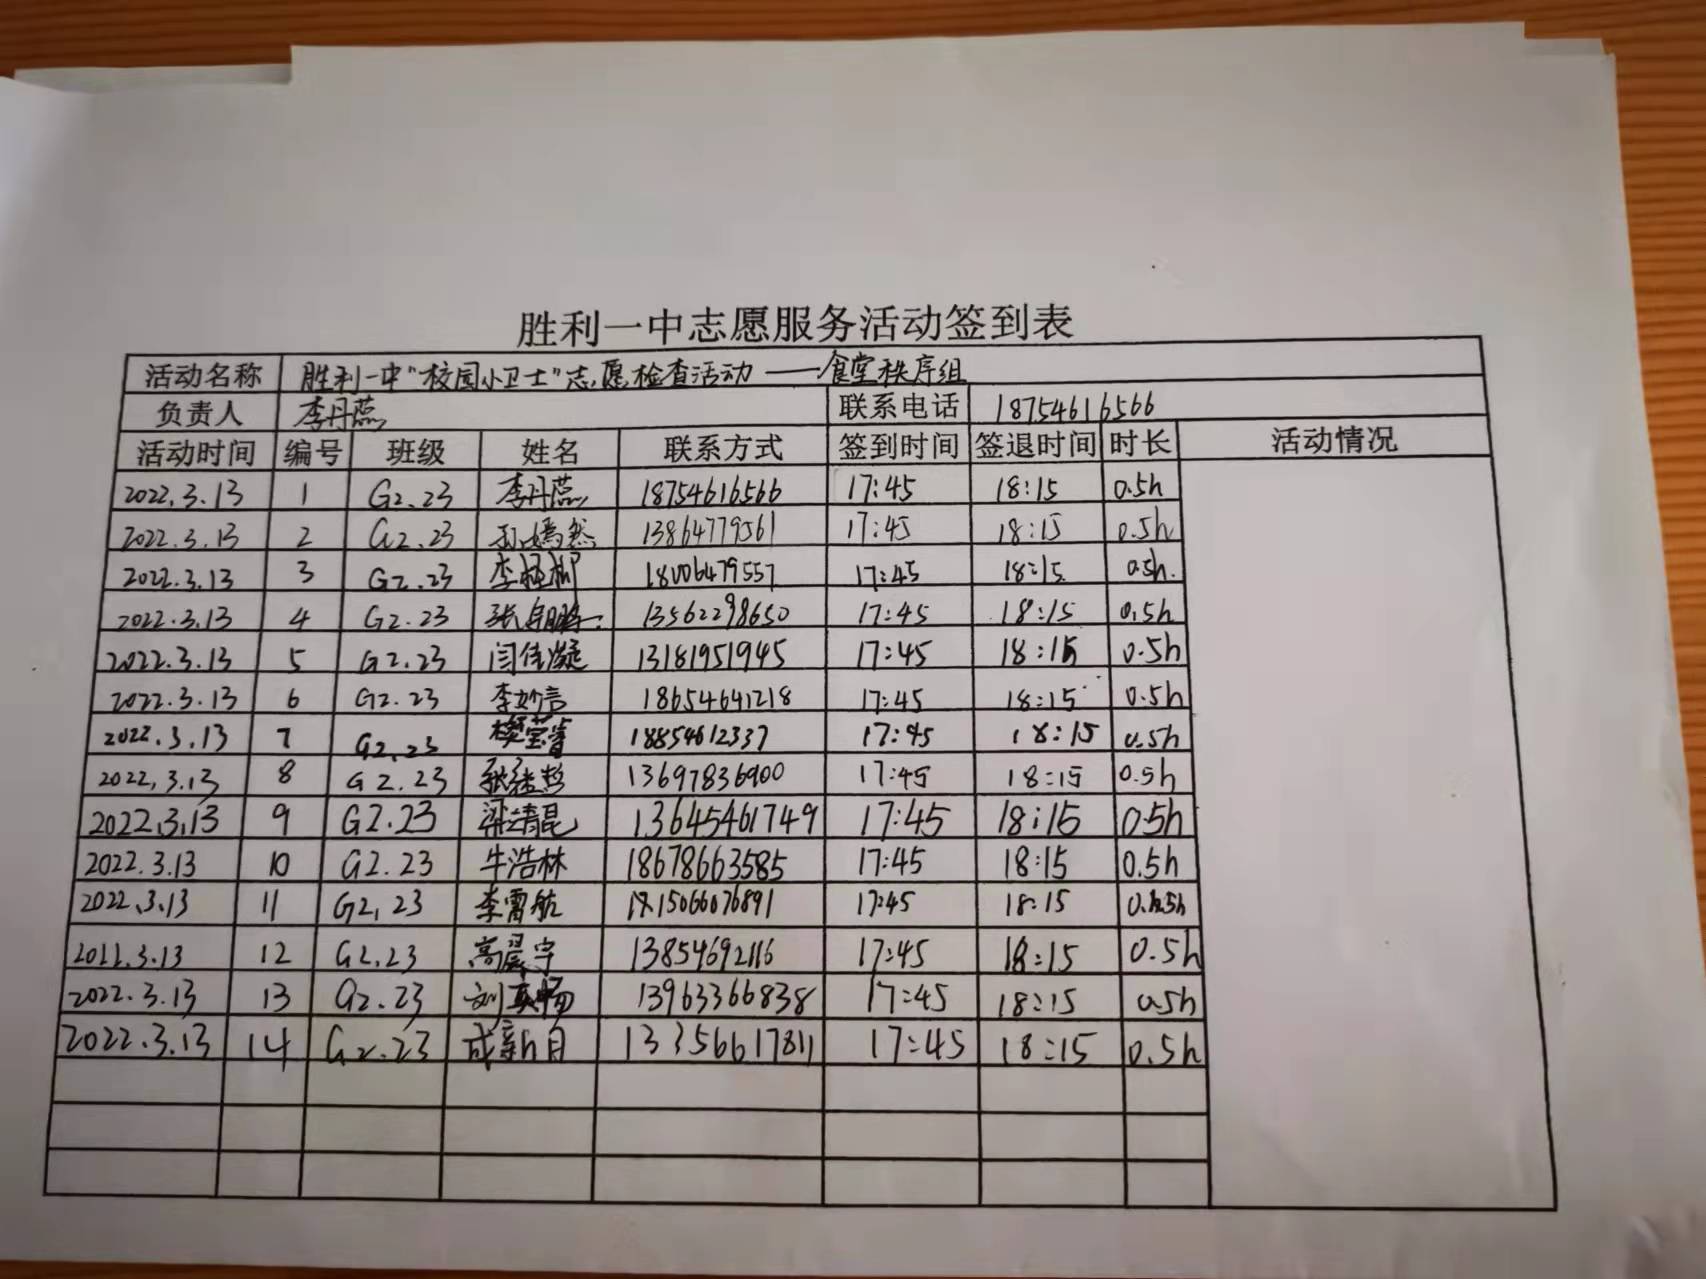 胜利一中志愿服务活动签到表
活动名称 胜利一中"校园小卫士"志愿检查活动——食堂秩序组
负责人 李丹蕊 联系电话 18754616566
活动时间 编号 班级 姓名 联系方式 签到时间 签退时间 时长 活动情况
2022.3.13 1 G2.23 李丹蕊 18754616566 17:45 18:15 0.5h
2022.3.13 2 G2.23 孙嫣然 13864779561 17:45 18:15 0.5h
2022.3.13 3 G2.23 18006479557 17:45 18:15 0.5h.
2022.3.13 4 G2.23 13562298650 17:45 18:15 0.5h
2022.3.13 5 G2.23 闫佳凝 13181951945 17:45 18:15 0.5h
2022.3.13 6 G2.23 李妙言 18654641218 17:45 18:15 0.5h
2022.3.13 7 G2.23 18854612337 17:45 18:15 0.5h
2022.3.13 8 G2.23 13697836900 17:45 18:15 0.5h
2022.3.13 9 G2.23 梁靖昆 13645461749 17:45 18:15 0.5h
2022.3.13 10 G2.23 牛浩林 18678663585 17:45 18:15 0.5h
2022.3.13 11 G2.23 李霄航 15066076891 17:45 18:15 0.5h
2022.3.13 12 G2.23 高晨宇 13854692116 17:45 18:15 0.5h
2022.3.13 13 G2.23 13963366838 17:45 18:15 0.5h
2022.3.13 14 G2.23 成新月 13356617811 17:45 18:15 0.5h